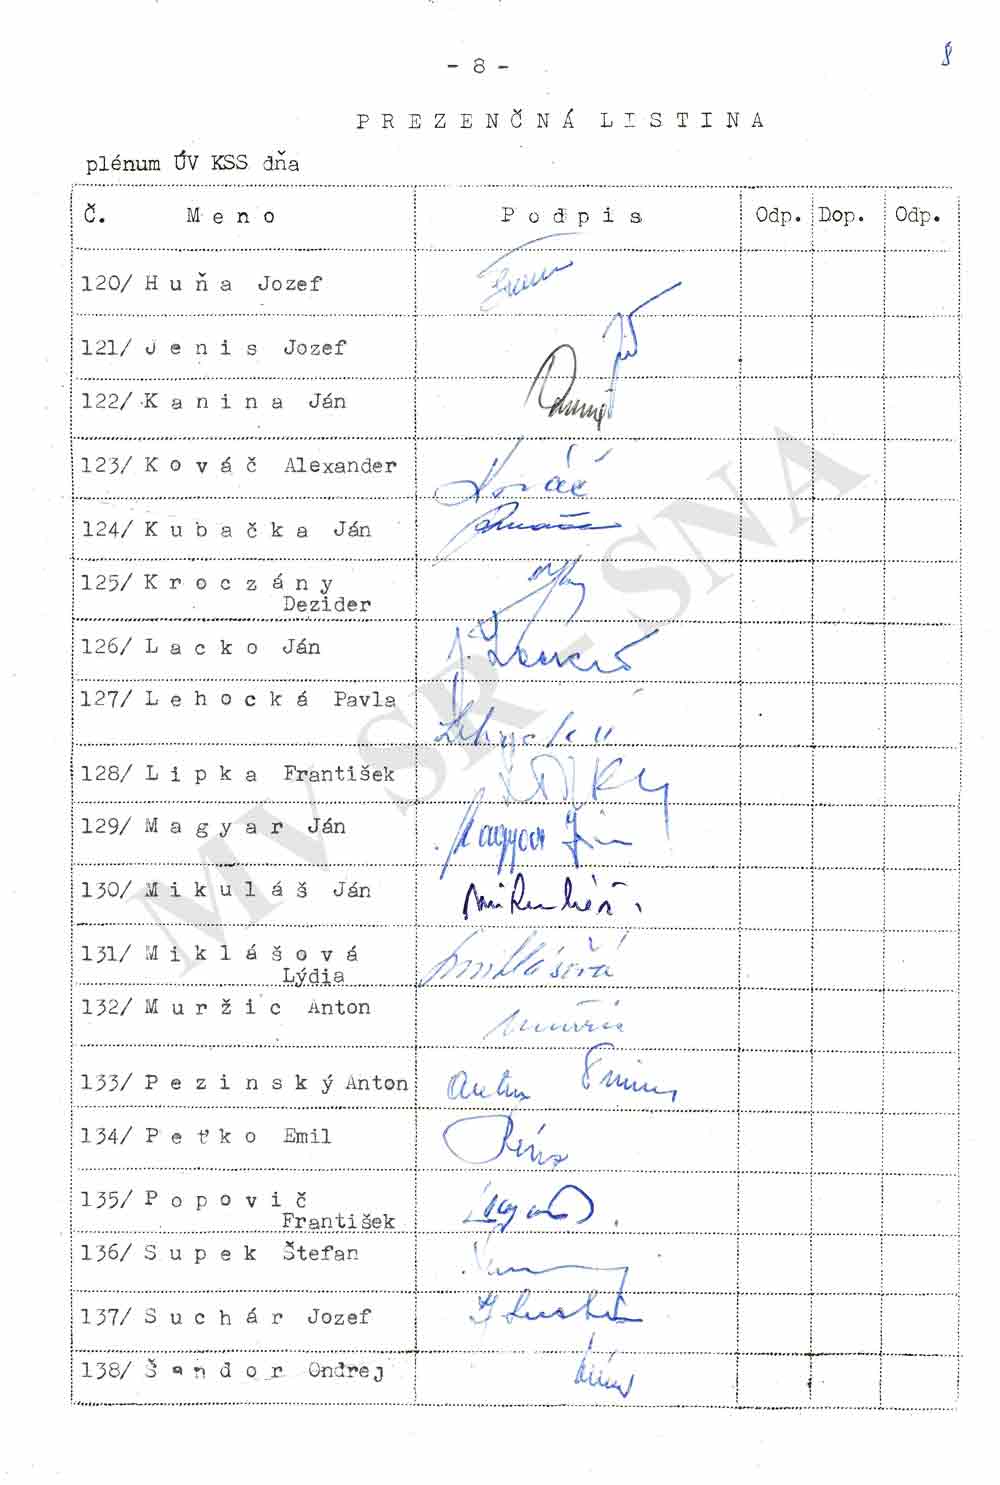 - 8 -
8
PREZENČNÁ LISTINA
plénum ÚV KSS dňa
Č. Meno Podpis Odp. Dop. Odp.
120/ Huňa Jozef
121/ Jenis Jozef
122/ Kanina Ján
123/ Kováč Alexander Kováč
124/ Kubačka Ján
125/ Kroczány
Dezider
126/ Lacko Ján
127/ Lehocká Pavla
128/ Lipka František
129/ Magyar Ján Magyar Ján
130/ Mikuláš Ján Mikuláš
131/ Miklášová Miklášová
Lýdia
132/ Muržic Anton
133/ Pezinský Anton Anton
134/ Peťko Emil
135/ Popovič
František
136/ Supek Štefan
137/ Suchár Jozef
138/ Šandor Ondrej
MV SR - SNA